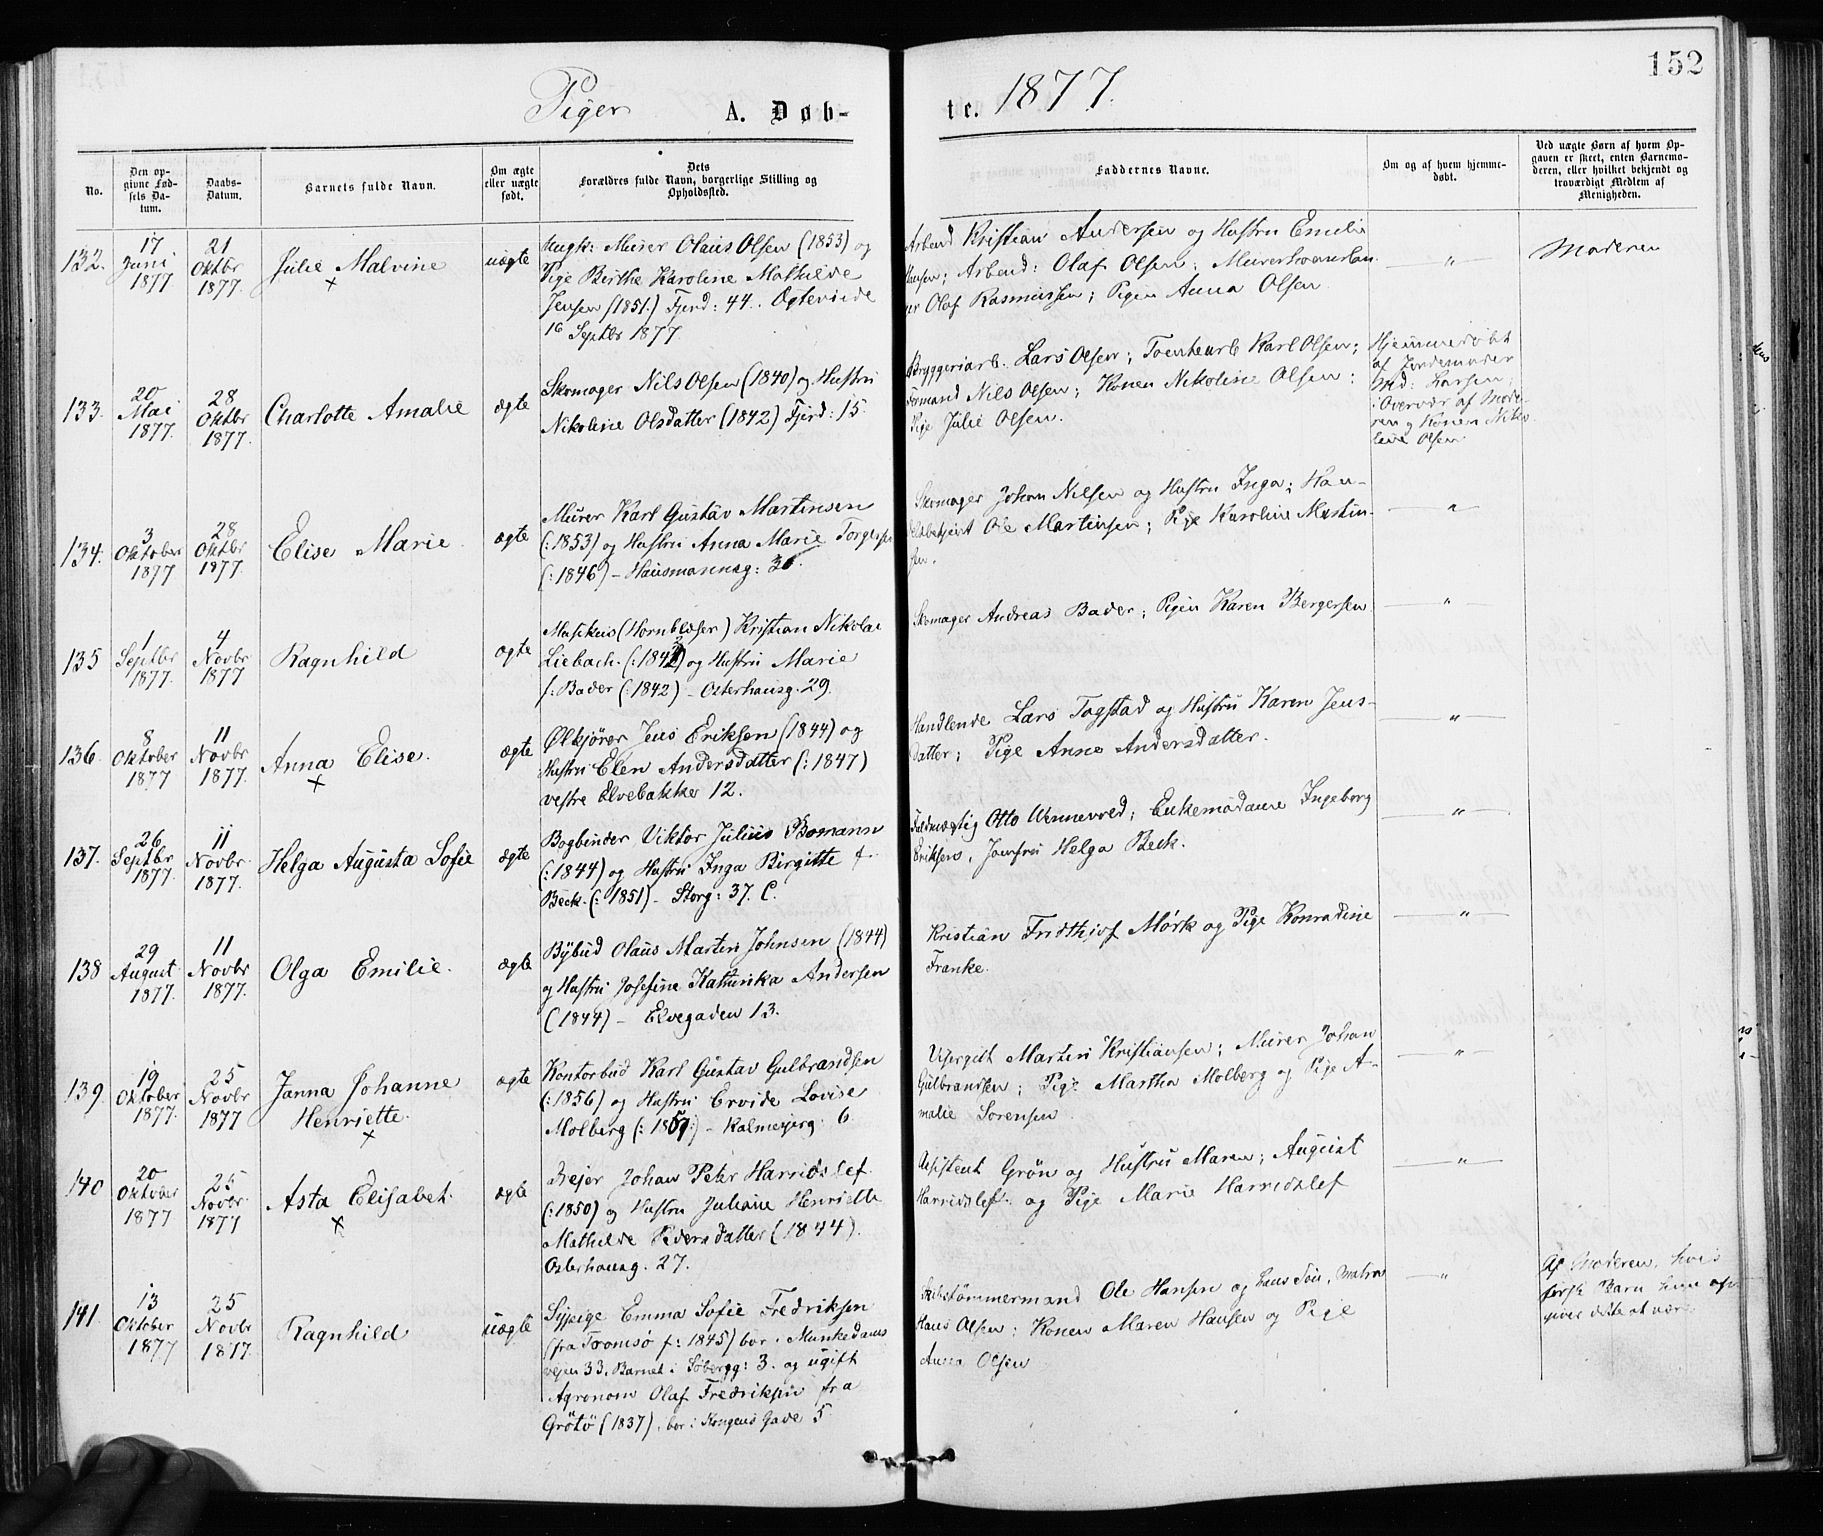 152
Piger A. Døb-
te. 1877.
No.
Den op-
givne Fød-
sels Da-
tum.
Daabs-
Datum.
Barnets fulde Navn.
Om ægte
eller uægte
født.
Dets
Forældres fulde Navn, borgerlige Stilling og
Opholdssted.
Faddernes Navne.
Om og af hvem hjemme-
døbt.
Ved uægte Børn af hvem Op-
gaven er skeet, enten Barnemo-
deren, eller hvilket bekjendt og
troværdigt Medlem af
Menigheden.
132.
17
Juni
1877
21
Oktbr
1877.
Julie Malvine
×
uægte
Ungk: Murer Olaus Olsen (1853) og
Pige Birthe Karoline Mathilde
Jensen (1851.) Fjerd: 44. Ægteviede
16 Septbr 1877.
Arbmd Kristian Andersen og Hustru Emilie
Hansen; Arbmd: Olaf Olsen;
Olaf Rasmussen; Pigen Anna Olsen.
"
Moderen
133.
20
Mai
1877.
28
Oktbr
1877.
Charlotte Amalie
ægte
Skomager Nils Olsen (1840) og Hustru
Nikoline Olsdatter (1842) Fjerd: 15.
Bryggeriarb. Lars Olsen; Karl Olsen;
Formand Nils Olsen; Konen Nikoline Olsen:
Pige Julie Olsen.
Hjemmedøbt
af Jordemoder
Md: Larsen,
i Overvær af Mode-
ren og Konen Niko-
line Olsen
134.
3
Oktober
1877
28
Oktbr
1877.
Elise Marie.
ægte
Murer Karl Gustav Martinsen
(:1853) og Hustru Anna Marie Torgersen
(:1846) – Hausmannsg: 31.
Skomager Johan Nilsen og Hustru Inga; Han-
delsbetjent Ole Martinsen; Pige Karoline Martin-
sen.
"
135
1
Septbr
1877.
4
Novbr
1877
Ragnhild
ægte
Musikus (Hornblæser) Kristian Nikolai
Liebach. og Hustru Marie
f: Bader (:1842) – Osterhausg. 29.
Skomager Andreas Bader; Pigen Karen Bergersen
"
136.
8
Oktober
1877
11
Novbr
1877.
Anna Elise.
×
ægte
Ølkjører Jens Eriksen (1844) og
Hustru Elen Andersdatter (:1847)
vestre Elvebakke 12.
Handlende Lars Togstad og Hustru Karen Jens-
datter; Pige Anne Andersdatter.
"
137.
26
Septbr
1877.
11
Novbr
1877.
Helga Augusta Sofie
ægte
Bogbinder Viktor Julius Bomann
(:1844) og Hustru Inga Birgitte f.
Beck. (:1851) – Storg: 37. C.
Fuldmægtig Otto Wennevold; Enkemadame Ingeborg
Eriksen, Jomfru Helga Beck.
"
138
29
August
1877.
11
Novbr
1877.
Olga Emilie.
ægte
Bybud Olaus Martin Johnsen (1844)
og Hustru Josefine Katinka Andersen
(1844) – Elvegaden 13.
Kristian Fridthjof Mørk og Pige Konradine
Franke.
"
139.
19
Oktober
1877.
25
Novbr
1877
Janna Johanne
Henriette.
×
ægte
Kontorbud Karl Gustav Gulbrandsen
(:1856) og Hustru Ervide Lovise
Molberg – Kalmeyerg: 6
Uhrgilt Martin Kristiansen; Murer Johan
Gulbrandsen; Pige Martha Molberg og Pige A-
malie Sorensen.
"
140
20
Oktober
1877
25
Novbr
1877
Asta Elisabet.
×
ægte
Bejer Johan Peter Harridslef.
(:1850) og Hustru Juliane Henriette
Mathilde Pedersdatter (1844).
Osterhausg. 27.
Assistent Grön og Hustru Maren; August
Harridslef: og Pige Marie Harridslef
"
141.
13
Oktober
1877
25
Novbr
1877.
Ragnhild
uægte
Sypige Emma Sofie Fredriksen
(fra Tromsø f: 1845) bor i Munkedams
vejen 33. Barnet i Søbergg: 3. og ugift
Agronom Olaf Fredriksen fra
Grötö (1837), bor: Kongens Gade 5.
Skibstömmermand Ole Hansen og hans Søn, matros
Hans Olsen; Konen Maren Hansen og Pige
Anna Olsen
"
Af Moderen, hvis
første Barn hun op-
giver dette at være